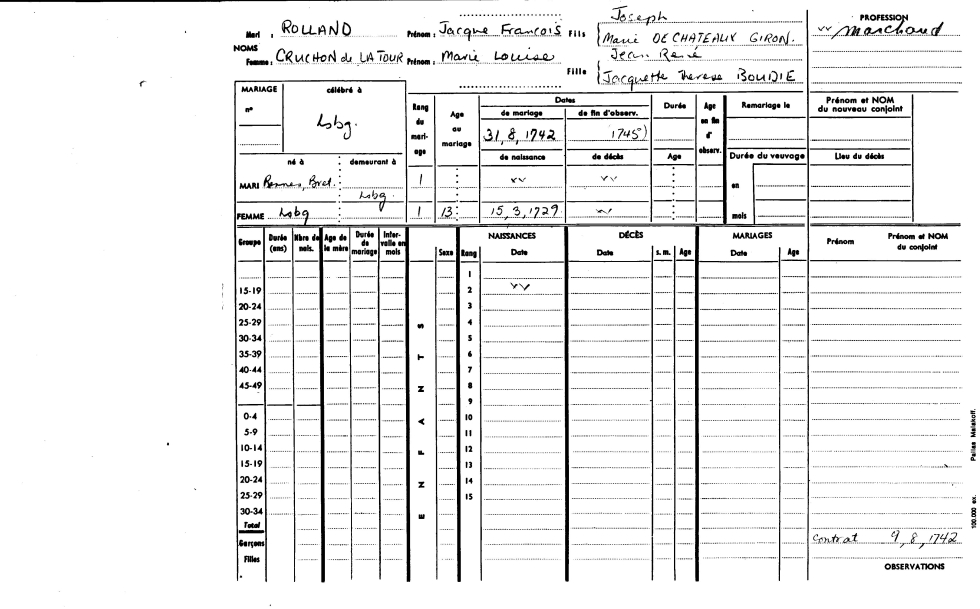 Mari : ROLLAND Prénom : Jacque François Fils { Joseph
Marie DE CHATEAUX GIRON.
NOMS
Femme : CRUCHON de LA TOUR Prénom : Marie Louise Fille { Jean René
Jacquette Therese BOUDIE
PROFESSION
vv marchand
MARIAGE
n°
célébré à
Lsbg.
né à
demeurant à
MARI Rennes, Bret. Lsbg.
FEMME Lsbg
Rang du mari-age
1
1
Age au mariage
13
Dates
de mariage
de fin d'observ.
31, 8, 1742
1745)
de naissance
de décès
vv
vv
15, 3, 1729
vv
Durée
Age
Age en fin d' observ.
Remariage le
Durée du veuvage
en
mois
Prénom et NOM du nouveau conjoint
Lieu du décès
Groupe
Durée (ans)
Nbre de nais.
Age de la mère
Durée de mariage
Inter-valle en mois
ENFANTS
Sexe
Rang
NAISSANCES
Date
DÉCÈS
Date
s. m.
Age
MARIAGES
Date
Age
Prénom
Prénom et NOM du conjoint
1
15-19 2 vv
20-24 3
25-29 4
30-34 5
35-39 6
40-44 7
45-49 8
9
0-4 10
5-9 11
10-14 12
15-19 13
20-24 14
25-29 15
30-34
Total
Garçons
Filles
Contrat 9, 8, 1742
OBSERVATIONS
100.000 ex. Pairies Malakoff.